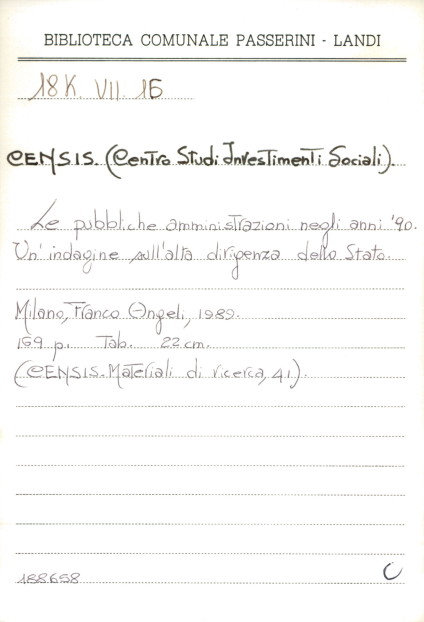 BIBLIOTECA COMUNALE PASSERINI - LANDI
18K. VII. 15
CENSIS. (Centro Studi Investimenti Sociali).
Le pubbliche amministrazioni negli anni '90.
Un'indagine sull'alta dirigenza dello Stato.
Milano, Franco Angeli, 1989.
159 p. Tab. 22 cm.
(CENSIS. Materiali di ricerca, 41).
188658 C